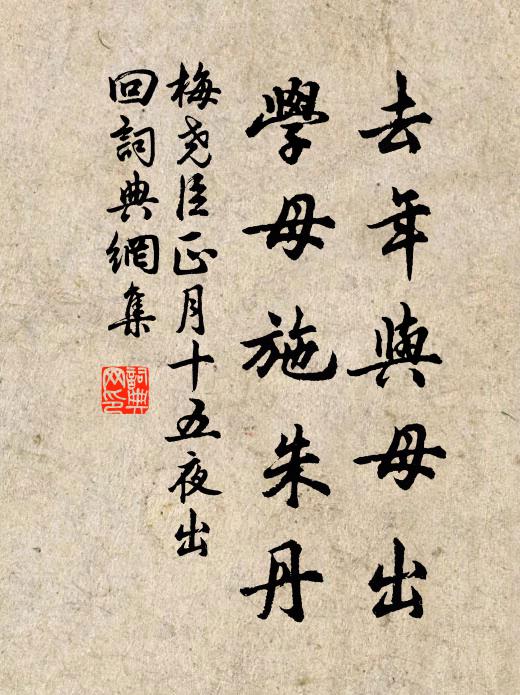 去年與母出
學母施朱丹
梅堯臣正月十五夜出
回詞典網集
詞典
网印